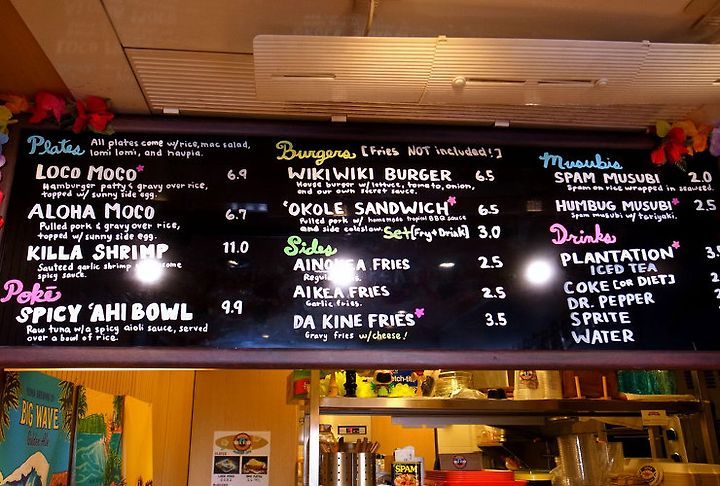 Plates All plates come w/rice, mac salad,
lomi lomi, and haupia.
LOCO MOCO 6.9
Hamburger patty & gravy over rice,
topped w/ sunny side egg.
ALOHA MOCO 6.7
Pulled pork & gravy over rice,
topped w/ sunny side egg.
KILLA SHRIMP 11.0
Sauteed garlic shrimp
spicy sauce.
Pokē
SPICY 'AHI BOWL 9.9
Raw tuna w/a spicy aioli sauce, served
over a bowl of rice.
Burgers [Fries NOT included!]
WIKIWIKI BURGER 6.5
House burger w/lettuce, tomato, onion,
and our own secret sauce.
'OKOLE SANDWICH 6.5
Pulled pork w/ homemade tropical BBQ sauce
and side coleslaw. Set[Fry+Drink] 3.0
Sides
AINOKEA FRIES 2.5
AIKEA FRIES 2.5
Garlic fries.
DA KINE FRIES 3.5
Gravy fries w/cheese!
Musubis
SPAM MUSUBI 2.0
Spam on rice wrapped in seaweed.
HUMBUG MUSUBI 2.5
Spam musubi w/ teriyaki.
Drinks
PLANTATION
ICED TEA
COKE [OR DIET]
DR. PEPPER
SPRITE
WATER
BIG WAVE
Golden Ale
SPAM